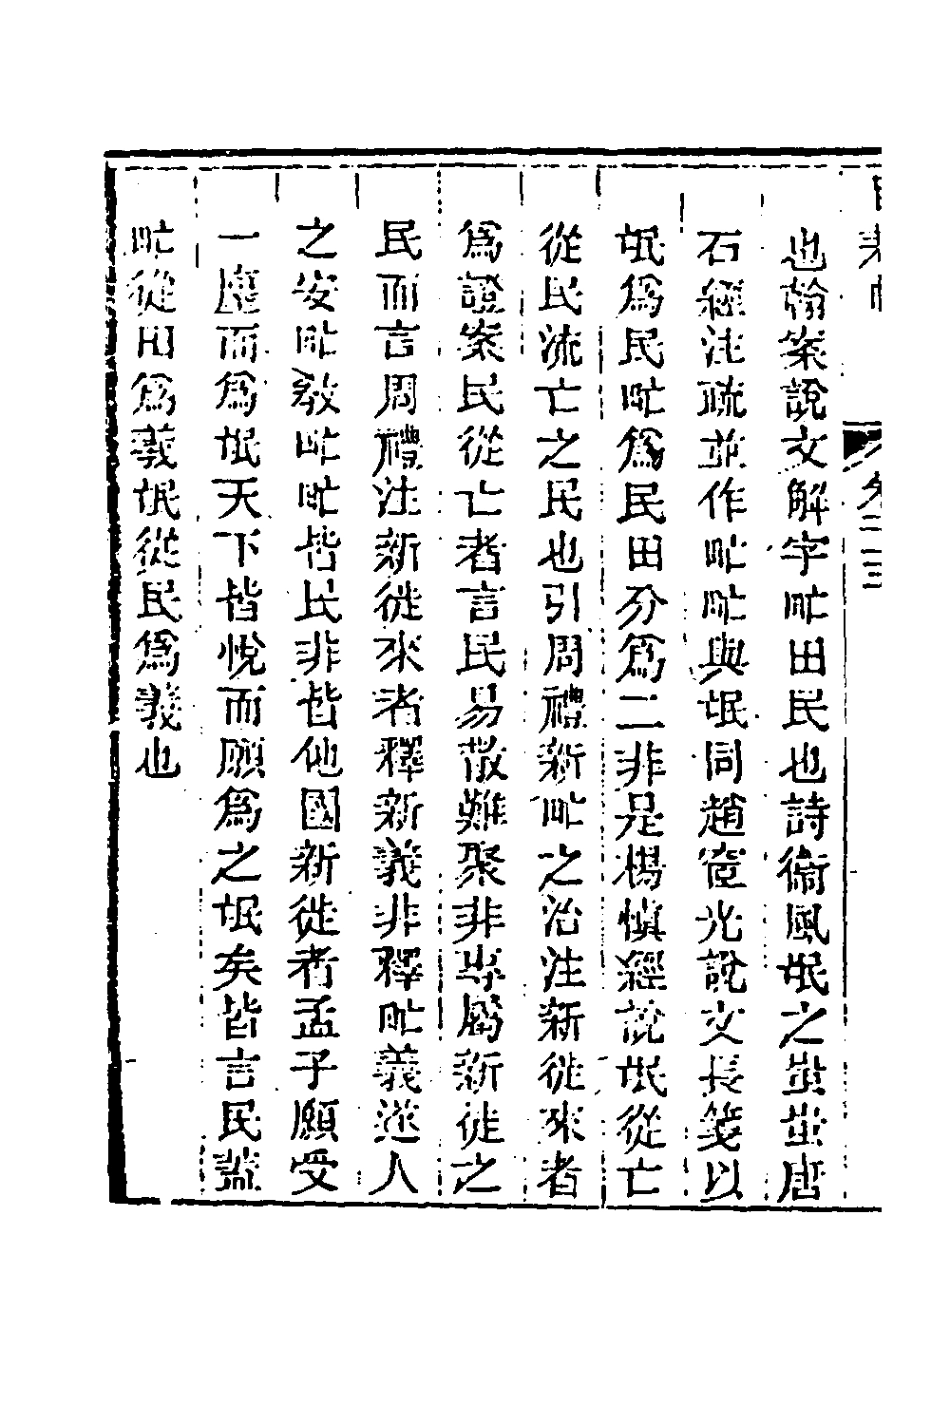 卷二三
也翰案說文解字甿田民也詩衞風氓之蚩蚩唐
石經注疏並作甿甿與氓同趙宧光說文長箋以
氓爲民甿爲民田分爲二非是楊慎經說氓從亡
從民流亡之民也引周禮新甿之治注新徙來者
爲證案民從亡者言民易散難聚非專屬新徙之
民而言周禮注新徙來者釋新義非釋甿義遂人
之安甿敎甿甿皆民非皆他國新徙者孟子願受
一廛而爲氓天下皆悅而願爲之氓矣皆言民葢
甿從田爲義氓從民爲義也